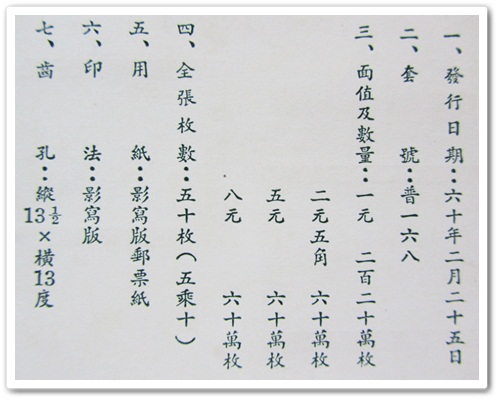 一、發行日期：六十年二月二十五日
二、套　　號：普一六八
三、面值及數量：一元　二百二十萬枚
二元五角　六十萬枚
五元　六十萬枚
八元　六十萬枚
四、全張枚數：五十枚（五乘十）
五、用　　紙：影寫版郵票紙
六、印　　法：影寫版
七、齒　　孔：縱13½×橫13度